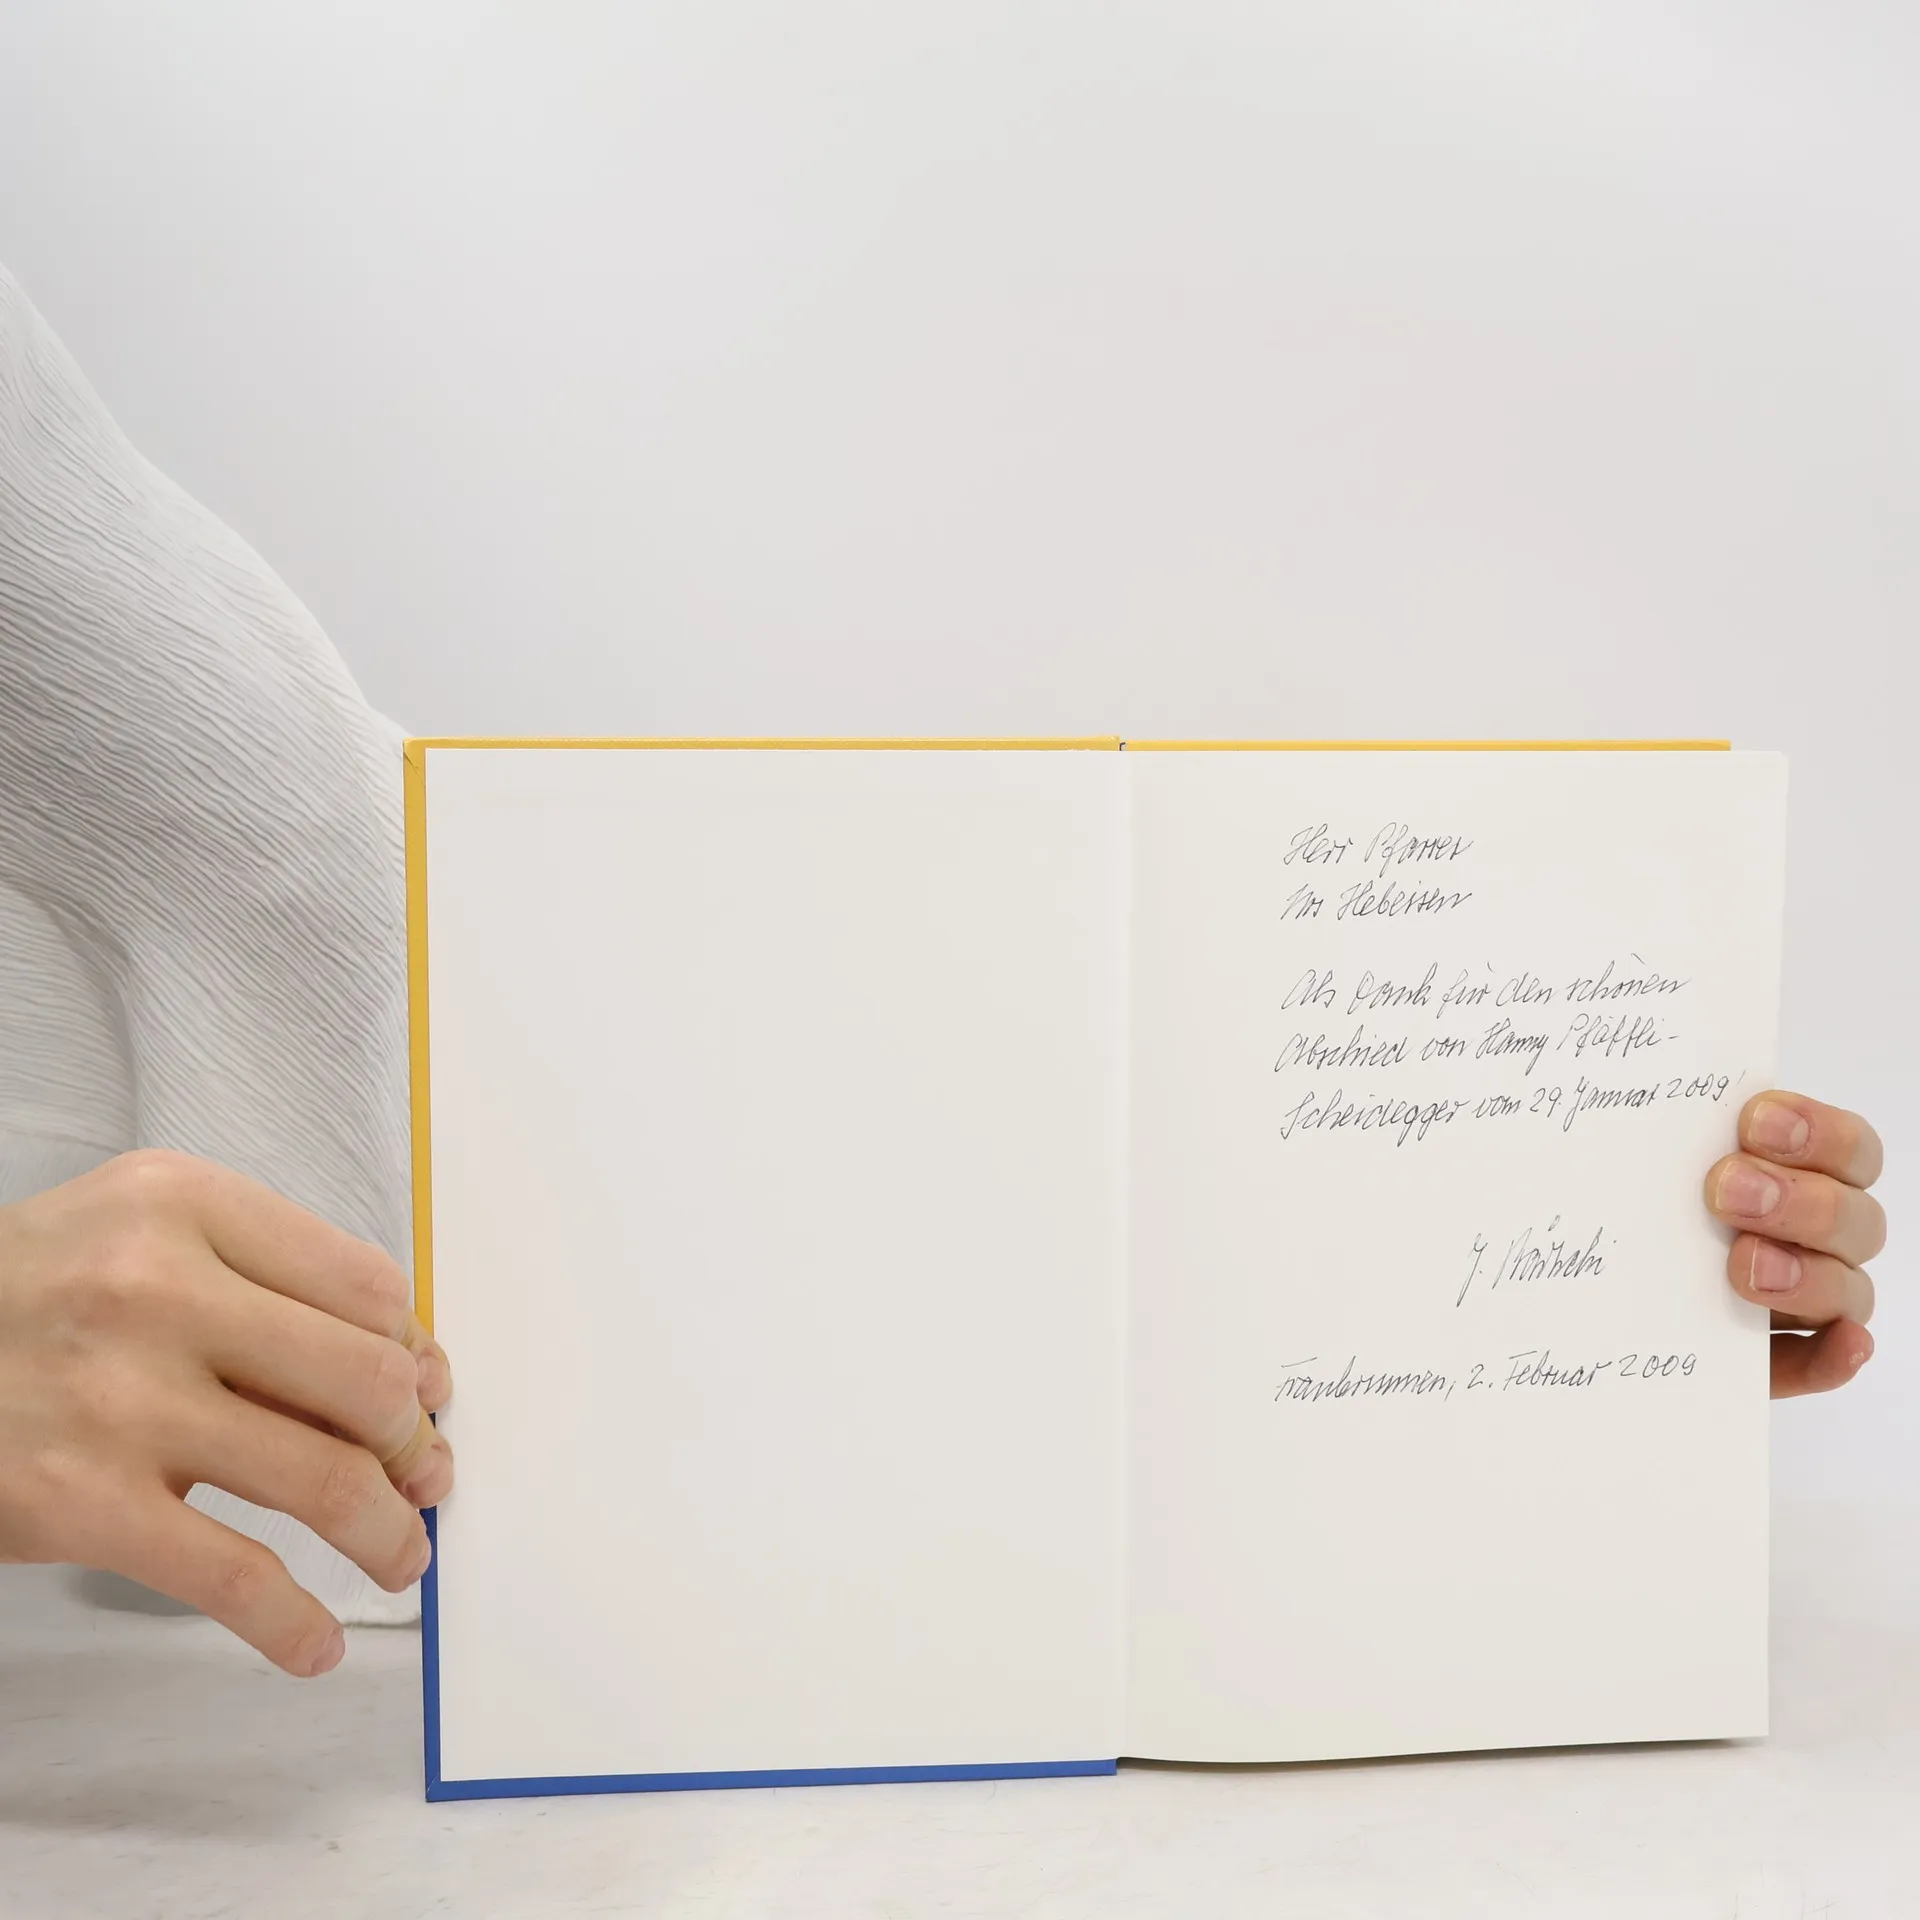 Herr Pfarrer
Hebeisen
Als Dank für den schönen
Abschied von Hanny Pfäffli-
Scheidegger vom 29. Januar 2009!
J.
Fraubrunnen, 2. Februar 2009